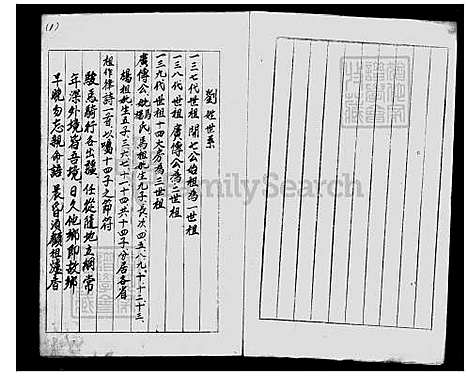 (1)
劉姓世系
一三七代世祖 開七公始祖為一世祖
一三八代 世祖 廣傳公為二世祖
一三九代 世祖十四大房為三世祖
廣傳公妣馬楊氏馬祖妣生九子長、次、四、五、八、九、十、十二、十三、
楊祖妣生五子三、六、七、十一、十四共十四子、分居各省
祖作律詩一首以囑十四子之節符
駿馬騎行各出疆 任從隨地立綱常
年深外境皆吾境 日久他鄉即故鄉
早晚勿忘親命語 晨昏須顧祖爐香
FamilySearch